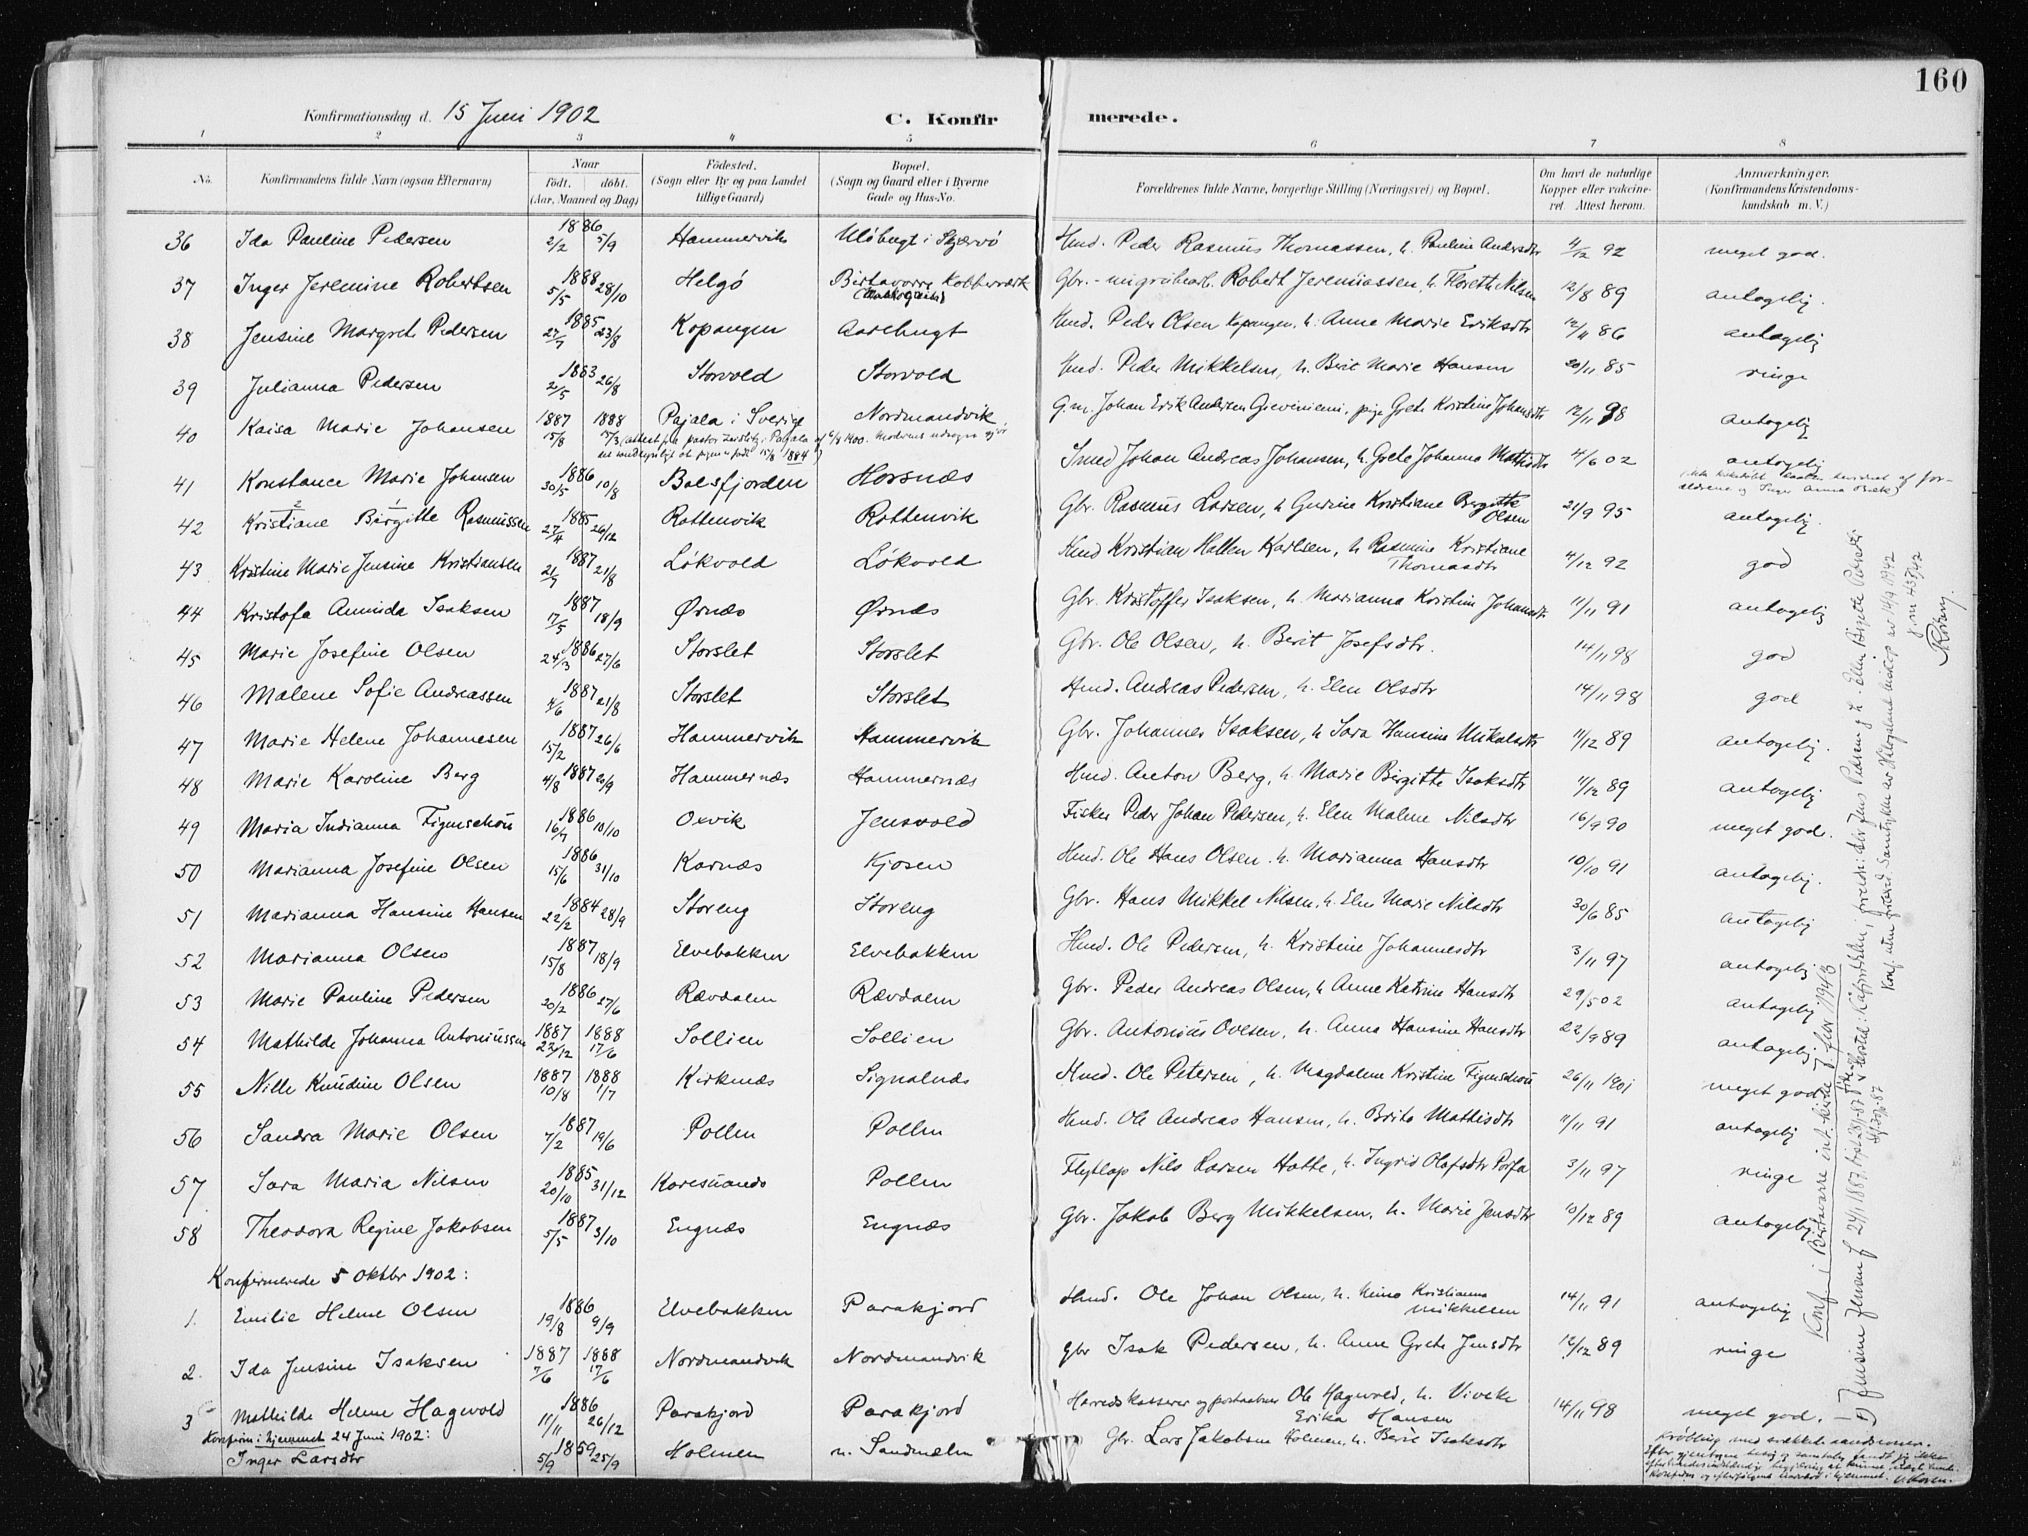 160
Konfirmationsdag d. 15 Juni 1902 C. Konfirmerede.
1 2 3 4 5 6 7 8
No. Konfirmandens fulde Navn (ogsaa Efternavn) Naar født. døbt. (Aar, Maaned og Dag) Fødested. (Sogn eller By og paa Landet tillige Gaard) Bopæl. (Sogn og Gaard eller i Byerne Gade og Hus-No. Forældrenes fulde Navne, borgerlige Stilling (Næringsvei) og Bopæl. Om havt de naturlige Kopper eller vakcineret. Attest herom. Anmærkninger. (Konfirmandens Kristendomskundskab m. V.)
36 Ida Pauline Pedersen 1886 2/2 5/9 Hammervik Ulöbugt i Skjervö Hmd. Peder Rasmus Thomassen, h. Pauline Andersdtr 4/12 92 meget god.
37 Inger Jeremine Robertsen 1888 5/5 28/10 Helgö Birtavarre Kobberverk Gbr. - Robert Jeremiassen, h. Nilsen 12/8 89 antagelig.
38 Jensine Margrete Pedersen 1885 27/7 23/8 Kopangen Aarebugt Hmd. Peder Olsen Kopangen, h. Anne Marie Eriksdtr 12/11 86 antagelig
39 Julianna Pedersen 1883 2/5 26/8 Storvold Storvold Hmd. Peder Mikkelsen, h. Berit Marie Hansen 20/11 85 ringe
40 Kaisa Marie Johansen 1887 15/8 1888 Pajala i Sverige Nordmandvik G.m. Johan Erik Andersen Greviniemi, pige Grete Kristine Johansdtr 12/11 98 antagelig
41 Konstance Marie Johansen 1886 30/5 10/8 Balsfjorden Horsnæs Smed Johan Andreas Johansen, h. Grete Johanna Mathisdtr 4/6 02 antagelig
42 Kristiane Birgitte Rasmussen 1885 27/4 26/12 Rottenvik Rottenvik Gbr. Rasmus Larsen, h Gurine Kristiane Bergitte Olsen 21/9 95 antagelig.
43 Kristine Marie Jensine Kristiansen 1887 21/7 21/8 Løkvold Løkvold Hmd Kristian Hatten Karlsen, h Rasmine Kristiane Thomasdtr 4/12 92 god
44 Kristofa Aminda Isaksen 1887 7/5 18/9 Ørnæs Ørnæs Gbr. Kristoffer Isaksen, h. Marianna Kristine Johansdtr. 11/11 91 antagelig
45 Marie Josefine Olsen 1886 24/3 27/6 Storslet Storslet Gbr. Ole Olsen, h. Berit Josefsdtr. 14/11 98 god
46 Malene Sofie Andreassen 1887 4/6 21/8 Storslet Storslet Hmd. Andreas Pedersen, h. Elen Olsdtr 14/11 98 god
47 Marie Helene Johannesen 1887 15/2 26/6 Hammervik Hammervik Gbr. Johannes Isaksen, h Sara Hansine Mikalsdtr 11/12 89 antagelig.
48 Marie Karoline Berg 1887 4/8 2/9 Hammernæs Hammernæs Hmd. Anton Berg, h. Marie Birgitte Isaksdtr 11/12 89 antagelig
49 Maria Indianna Figenschou 1886 16/7 10/10 Oxvik Jensvold Fisker Peder Johan Pedersen, h. Elen Malene Nilsdtr 16/9 90 meget god.
50 Marianna Josefine Olsen 1886 15/6 31/10 Karnæs Kjosen Hmd. Ole Hans Olsen. h. Marianna Hansdtr 10/10 91 antagelig.
51 Marianna Hansine Hansen 1884 22/2 28/9 Storeng Storeng Gbr. Hans Mikkel Nilsen, h. Elen Marie Nilsdtr 30/6 85 antagelig
52 Marianna Olsen 1887 15/8 18/9 Elvebakken Elvebakken Hmd. Ole Pedersen, h. Kristine Johannesdtr 3/11 97 antagelig
53 Marie Pauline Pedersen 1886 20/2 27/6 Rævdalen Rævdalen Gbr. Peder Andreas Olsen, h Anne Katrine Hansdtr 29/5 02 antagelig
54 Mathilde Johanna Antoniussen 1887 22/12 1888 17/6 Sollien Sollien Gbr. Antonius Ovesen, h. Anna Hansine Hansdtr 22/9 89 antagelig
55 Nille Knudine Olsen 1887 10/8 1888 1/7 Kirknæs Signalnæs Hmd. Ole Petersen, h. Magdalene Kristine Figenschou 26/11 1901 meget god
56 Sandra Marie Olsen 1887 7/2 19/6 Pollen Pollen Hmd. Ole Andreas Hansen, h. Brita Mathisdtr 11/11 91 antagelig
57 Sara Maria Nilsen 1885 20/10 31/12 Karesuando Pollen Flytlap Nils Larsen Hatte, h. Ingrid Olafsdtr Porfa 3/11 97 ringe
58 Theodora Regine Jakobsen 1887 5/5 3/10 Engnæs Engnæs Gbr. Jakob Berg Mikkelsen, h. Marie Jensdtr 10/12 89 antagelig
Konfirmerede 5 Oktbr 1902:
1. Emilie Helene Olsen 1886 19/8 9/9 Elvebakken Parakjord Hmd. Ole Johan Olsen, h. Kristianna Mikkelsen 14/11 91 antagelig
2. Ida Jensine Isaksen 1887 7/6 1888 17/6 Nordmandvik Nordmandvik gbr Isak Pedersen, h. Anne Grete Jensdtr 12/12 89 ringe
3 Mathilde Helene Hagevold 1886 11/11 26/12 Parakjord Parakjord Herredskasserer og Ole Hagevold, h. Viveke Erika Hansen 14/11 98 meget god.
Konfirm. i hjemmet 24 Juni 1902:
Inger Larsdtr 1859 5/9 25/9 Holmen n. Sandmælen Gbr. Lars Jakobsen Holmen, h. Berit Isaksdtr
Konf. i Birtavarre int. kirke 7 febr 1943